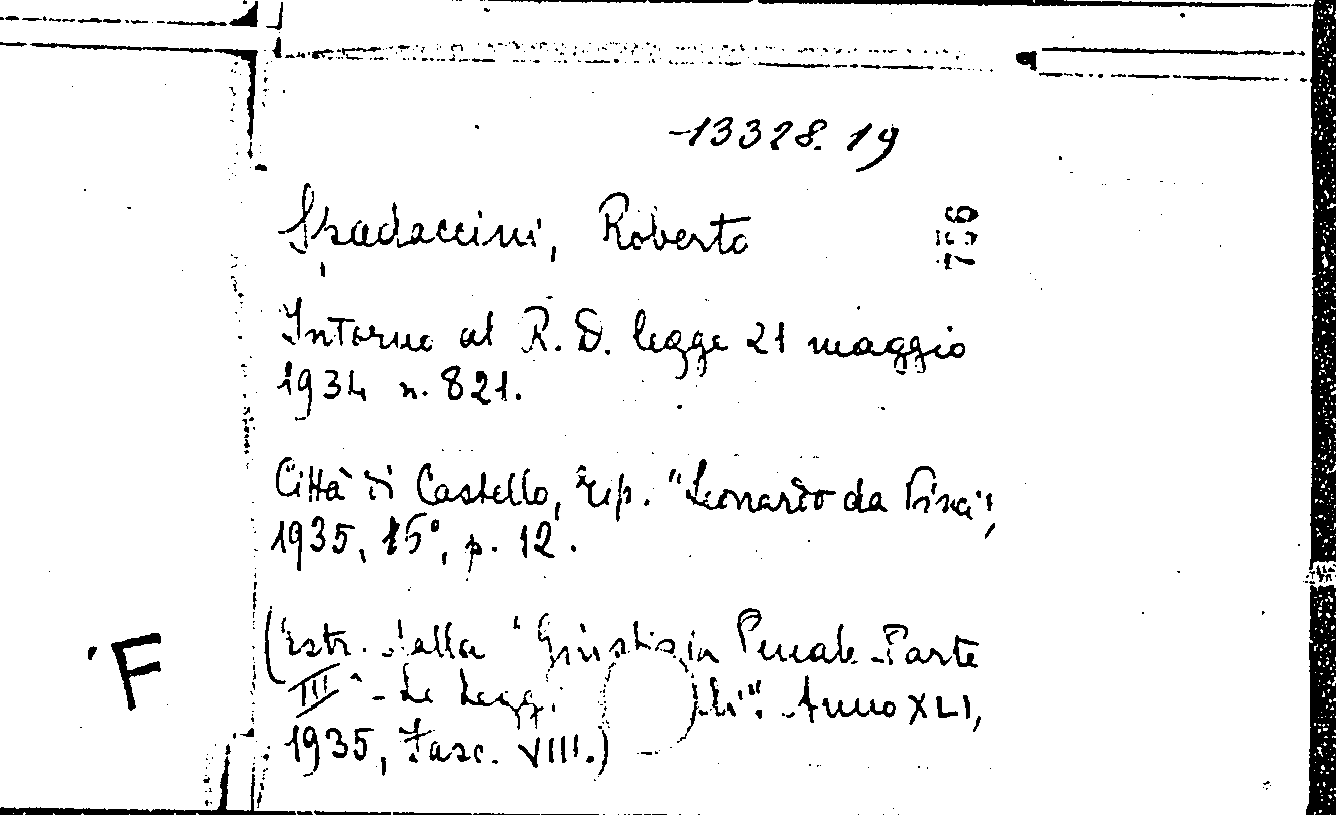 13328.19
Spadaccini, Roberto
756
Intorno al R. D. legge 21 maggio
1934 n. 821.
Città di Castello, Tip. "Leonardo da Vinci",
1935, 15°, p. 12.
(Estr. dalla "Giustizia Penale - Parte
III" - Le Leggi Anno XLI,
1935, Fasc. VIII.)
F